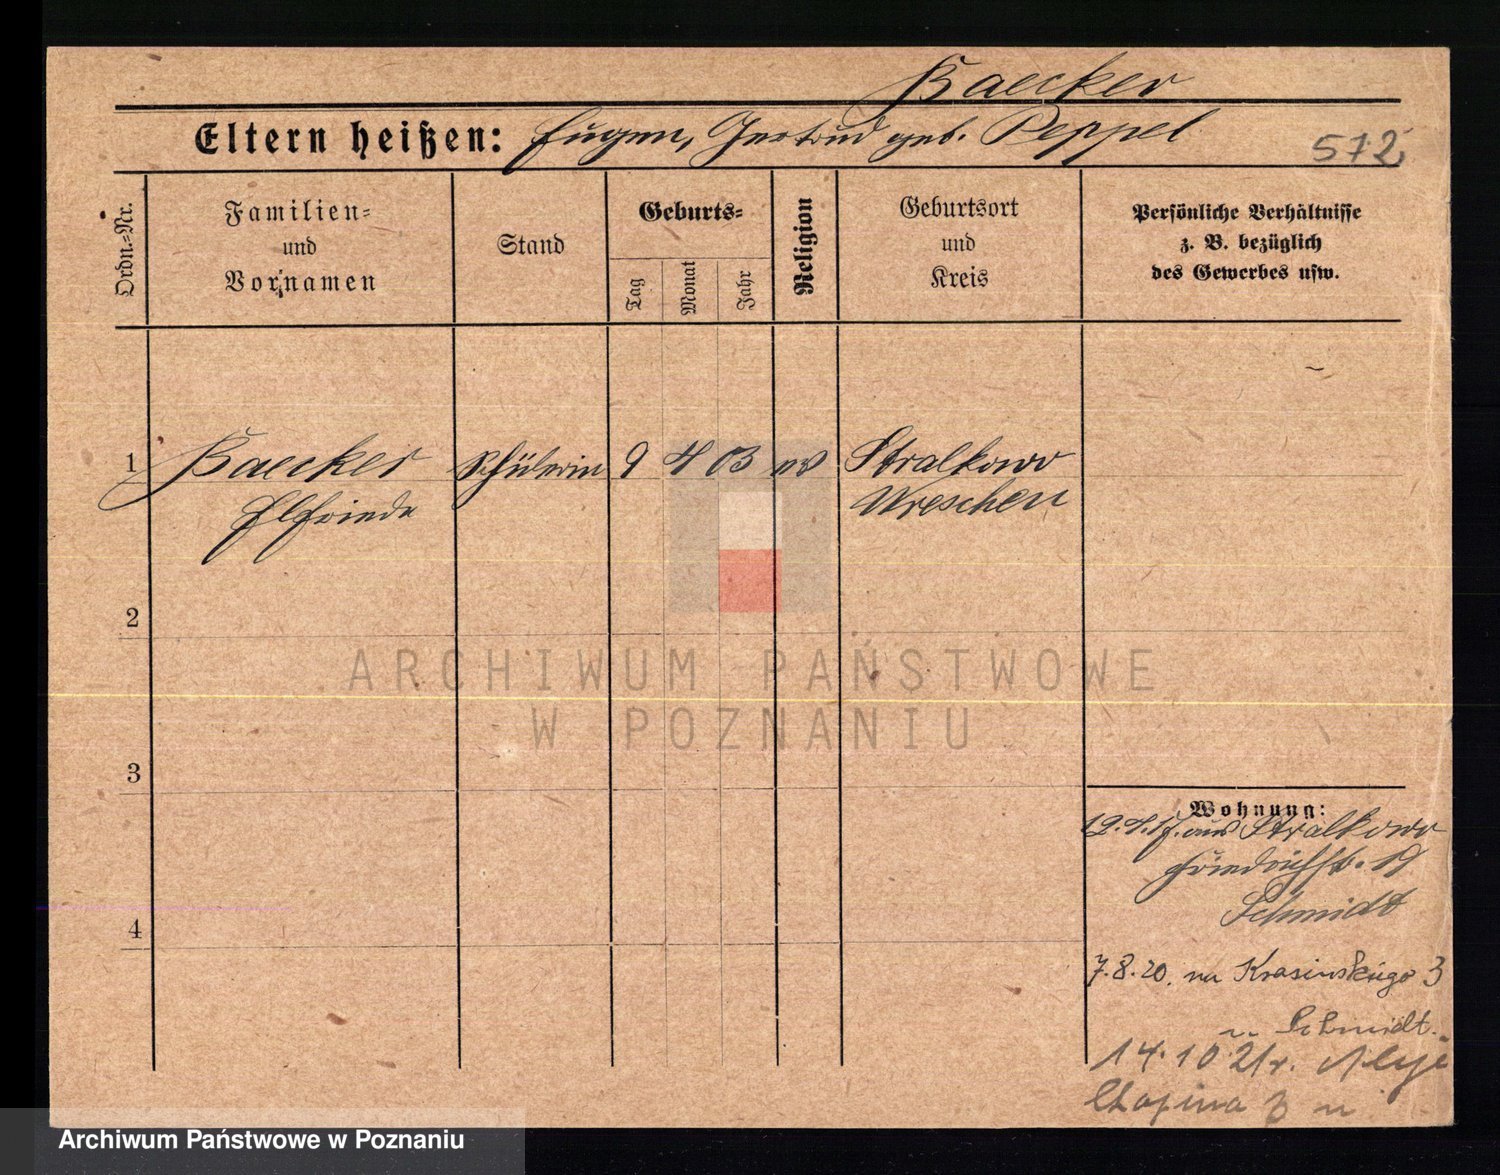 Baecker
Eltern heißen: Eugen, Gertrud geb. Peppel
572
Ordn.=Nr.
Familien=
und
Vornamen
Stand
Geburts=
Tag
Monat
Jahr
Religion
Geburtsort
und
Kreis
Persönliche Verhältnisse
z. B. bezüglich
des Gewerbes usw.
1 Baecker Schülerin 9 4 03 ev Stralkowo
Elfriede Wreschen
2
3
4
Wohnung:
12.4.17. aus Stralkowo
Friedrichstr. 19
Schmidt
7.8.20. na Krasinskiego 3
u Schmidt.
14.10 21 r. Aleje
Chopina 3 u
ARCHIWUM PAŃSTWOWE
W POZNANIU
Archiwum Państwowe w Poznaniu